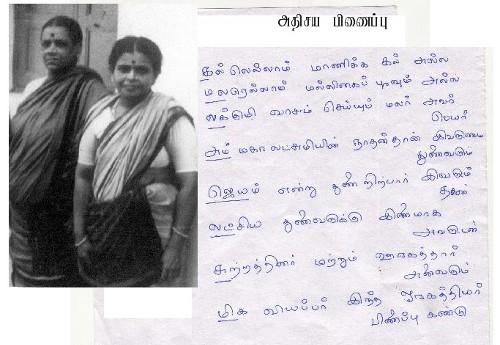 அதிசய பிணைப்பு
கல்லெல்லாம் மாணிக்க கல் அல்ல
மலரெல்லாம் மல்லிகைப் பூவும் அல்ல
வாசம் செய்யும் மலர் அவர்
பெயர்
அம் மகாலட்சுமியின் நாதன்தான்
ஜெயம் என்று இவரும்
தன்
லட்சிய துணைவருக்கு இணையாக
அவருடன்
சுற்றத்தினர் மற்றும்
அனைவரும்
மிக வியப்பர் இந்த
பிணைப்பு கண்டு